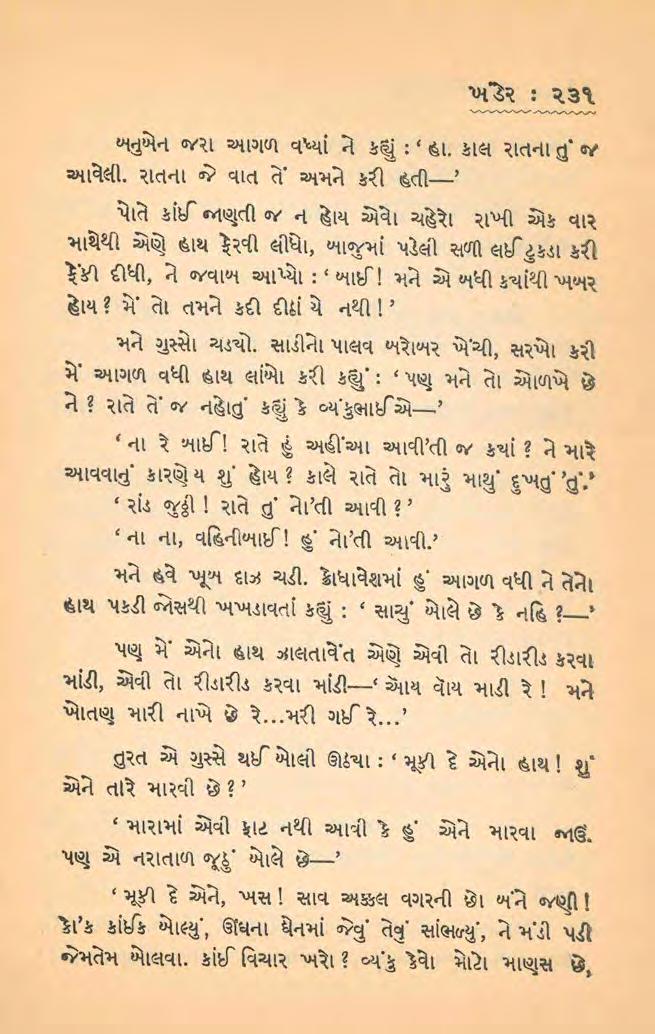 ખંડેર : ૨૩૧
બનુબેન જરા આગળ વધ્યાં ને કહ્યું : ‘ હા. કાલ રાતના તું જ
આવેલી. રાતના જે વાત તેં અમને કરી હતી—’
પોતે કાંઈ જાણતી જ ન હોય એવો ચહેરો રાખી એક વાર
માથેથી એણે હાથ ફેરવી લીધો, બાજુમાં પડેલી સળી લઈ ટુકડા કરી
ફેંકી દીધી, ને જવાબ આપ્યો : ‘ બાઈ! મને એ બધી કયાંથી ખબર
હોય ? મેં તો તમને કદી દીઠાં યે નથી ! ’
મને ગુસ્સો ચડયો. સાડીનો પાલવ બરોબર ખેંચી, સરખો કરી
મેં આગળ વધી હાથ લાંબો કરી કહ્યું : ‘ પણ મને તો ઓળખે છે
ને ? રાતે તેં જ નહોતું કહ્યું કે વ્યંકુભાઈએ—’
‘ ના રે બાઈ! રાતે હું અહીંઆ આવી’તી જ કયાં ? ને મારે
આવવાનું કારણે ય શું હોય ? કાલે રાતે તો મારું માથું દુખતું ’તું.’
‘ રાંડ જુઠ્ઠી ! રાતે તું નો’તી આવી ? ’
‘ ના ના, વહિનીબાઈ ! હું નો’તી આવી.’
મને હવે ખૂબ દાઝ ચડી. ક્રોધાવેશમાં હું આગળ વધી ને તેનો
હાથ પકડી જોસથી ખખડાવતાં કહ્યું : ‘ સાચું બોલે છે કે નહિ ?—’
પણ મેં એનો હાથ ઝાલતાવેંત એણે એવી તો રીડારીડ કરવા
માંડી, એવી તો રીડારીડ કરવા માંડી—‘ ઓય વોય માડી રે ! મને
ખોતણ મારી નાખે છે રે...મરી ગઈ રે...’
તુરત એ ગુસ્સે થઈ બોલી ઊઠયા : ‘ મૂકી દે એનો હાથ ! શું
એને તારે મારવી છે ? ’
‘ મારામાં એવી ફાટ નથી આવી કે હું એને મારવા જાઉં.
પણ એ નરાતાળ જૂઠું બોલે છે—’
‘ મૂકી દે એને, ખસ ! સાવ અક્કલ વગરની છો બંને જણી !
કો’ક કાંઈક બોલ્યું, ઊંઘના ઘેનમાં જેવું તેવું સાંભળ્યું, ને મંડી પડી
જેમતેમ બોલવા. કાંઈ વિચાર ખરો ? વ્યંકુ કેવો મોટો માણસ છે,